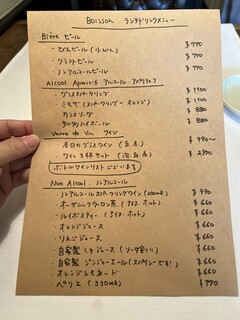 Boisson ランチドリンクメニュー
Bière ビール
・びんビール (小びん) ¥770
・クラフトビール ¥770
・ノンアルコールビール ¥770
Alcool Apéritifs アルコール・アペリティフ
・グラススパークリング ¥1100
・ミモザ (スパークリング + オレンジ) ¥1100
・カシスソーダ ¥880
・ハイボール ¥880
Verre de Vin ワイン
・本日のグラスワイン (白 赤) ¥990~
・ワイン 3杯セット (泡 白 赤) ¥2970
ボトルワインリストございます
Non Alcool ノンアルコール
・ノンアルコールスパークリングワイン (200ml) ¥990
・オーガニックウーロン茶 (アイス ホット) ¥660
・ルイボスティー (アイス ホット) ¥660
・オレンジジュース ¥660
・りんごジュース ¥660
・自家製 ジュース (ソーダ割り) ¥660
・自家製 ジンジャーエール (スパイシーです!) ¥660
・オレンジレモネード ¥660
・ペリエ (330ml) ¥770